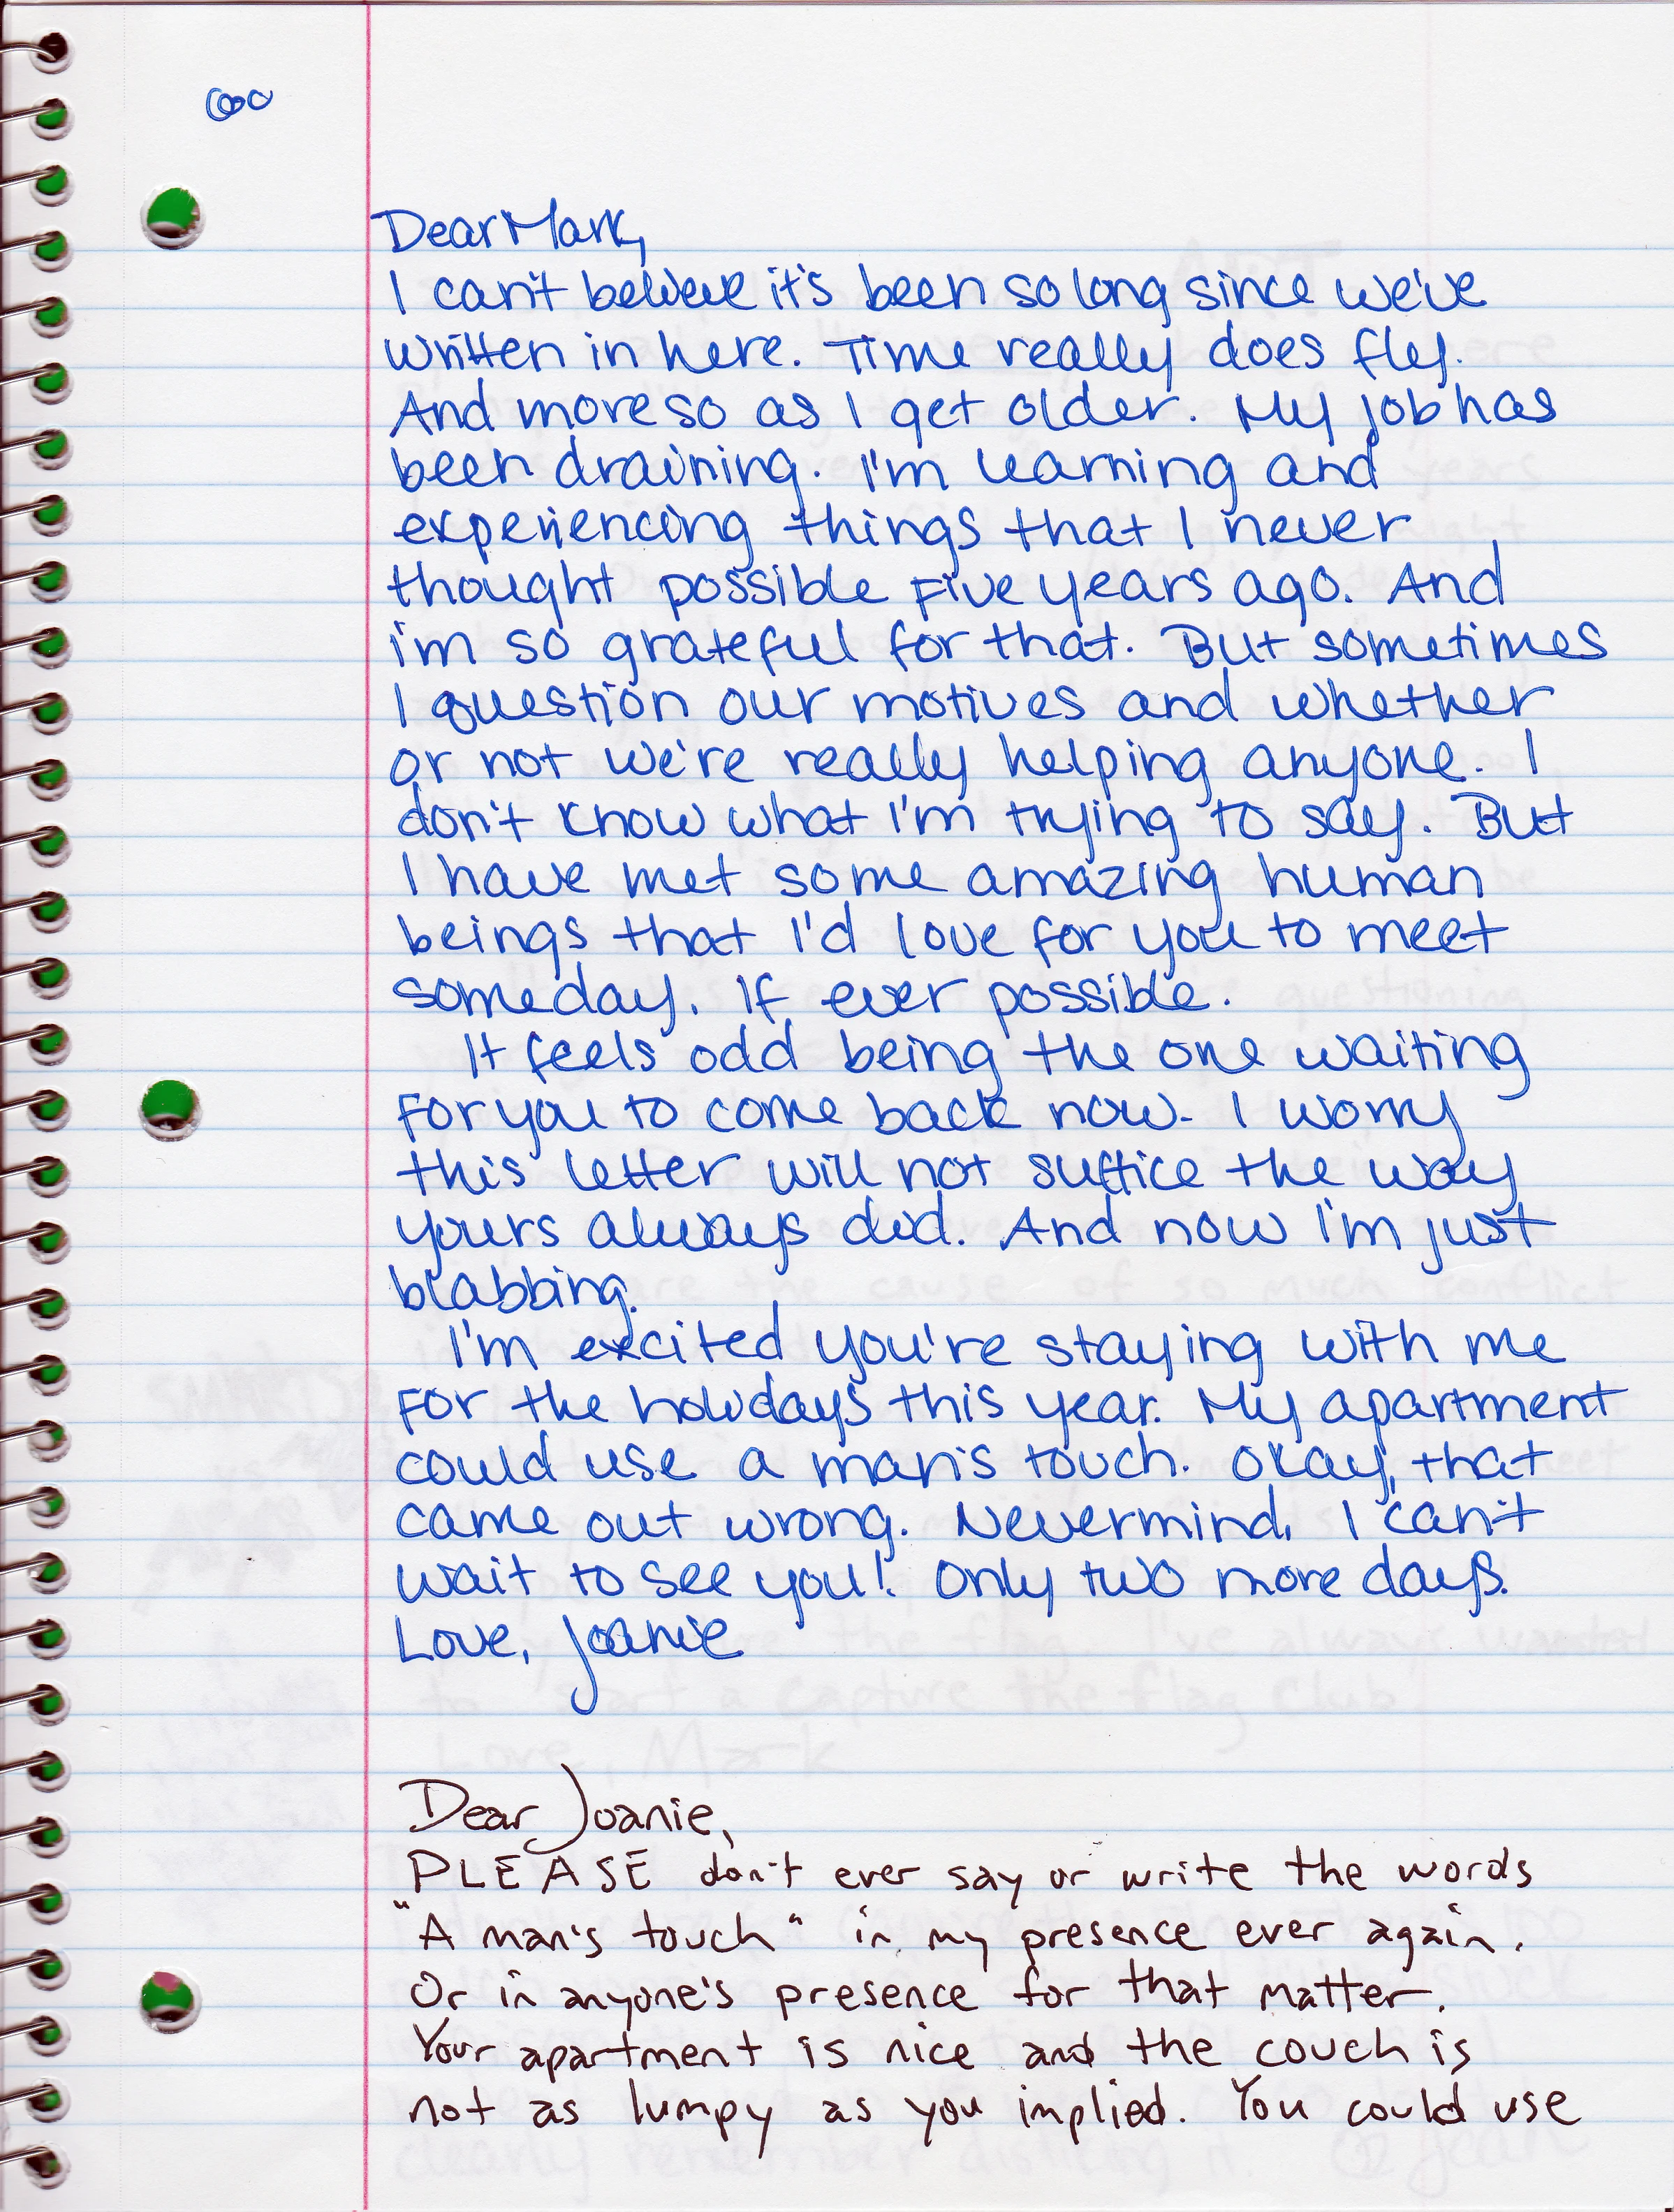 Dear Mark,
I can't believe it's been so long since we've
written in here. Time really does fly.
And more so as I get older. My job has
been draining. I'm learning and
experiencing things that I never
thought possible five years ago. And
i'm so grateful for that. But sometimes
I question our motives and whether
or not we're really helping anyone. I
don't know what I'm trying to say. But
I have met some amazing human
beings that I'd love for you to meet
someday. If ever possible.
It feels odd being the one waiting
for you to come back now. I worry
this letter will not suffice the way
yours always did. And now I'm just
blabbing.
I'm excited you're staying with me
for the holidays this year. My apartment
could use a man's touch. Okay, that
came out wrong. Nevermind, I can't
wait to see you! Only two more days.
Love, Joanie
Dear Joanie,
PLEASE don't ever say or write the words
"A man's touch" in my presence ever again.
Or in anyone's presence for that matter.
Your apartment is nice and the couch is
not as lumpy as you implied. You could use